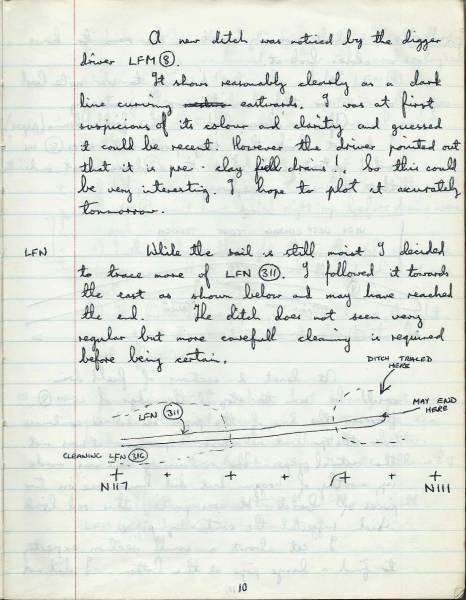 A new ditch was noticed by the digger
driver LFM 8.
It shows reasonably clearly as a dark
line curving eastwards. I was at first
suspicious of its colour and clarity and guessed
it could be recent. However the driver pointed out
that it is pre-clay field drains! So this could
be very interesting. I hope to plot it accurately
tommorrow.
LFN
While the soil is still moist I decided
to trace more of LFN 311. I followed it towards
the east as shown below and may have reached
the end. The ditch does not seem very
regular but more carefull cleaning is required
before being certain.
DITCH TRACED
HERE
LFN 311
MAY END
HERE
CLEANING LFN 316
N117
N111
10